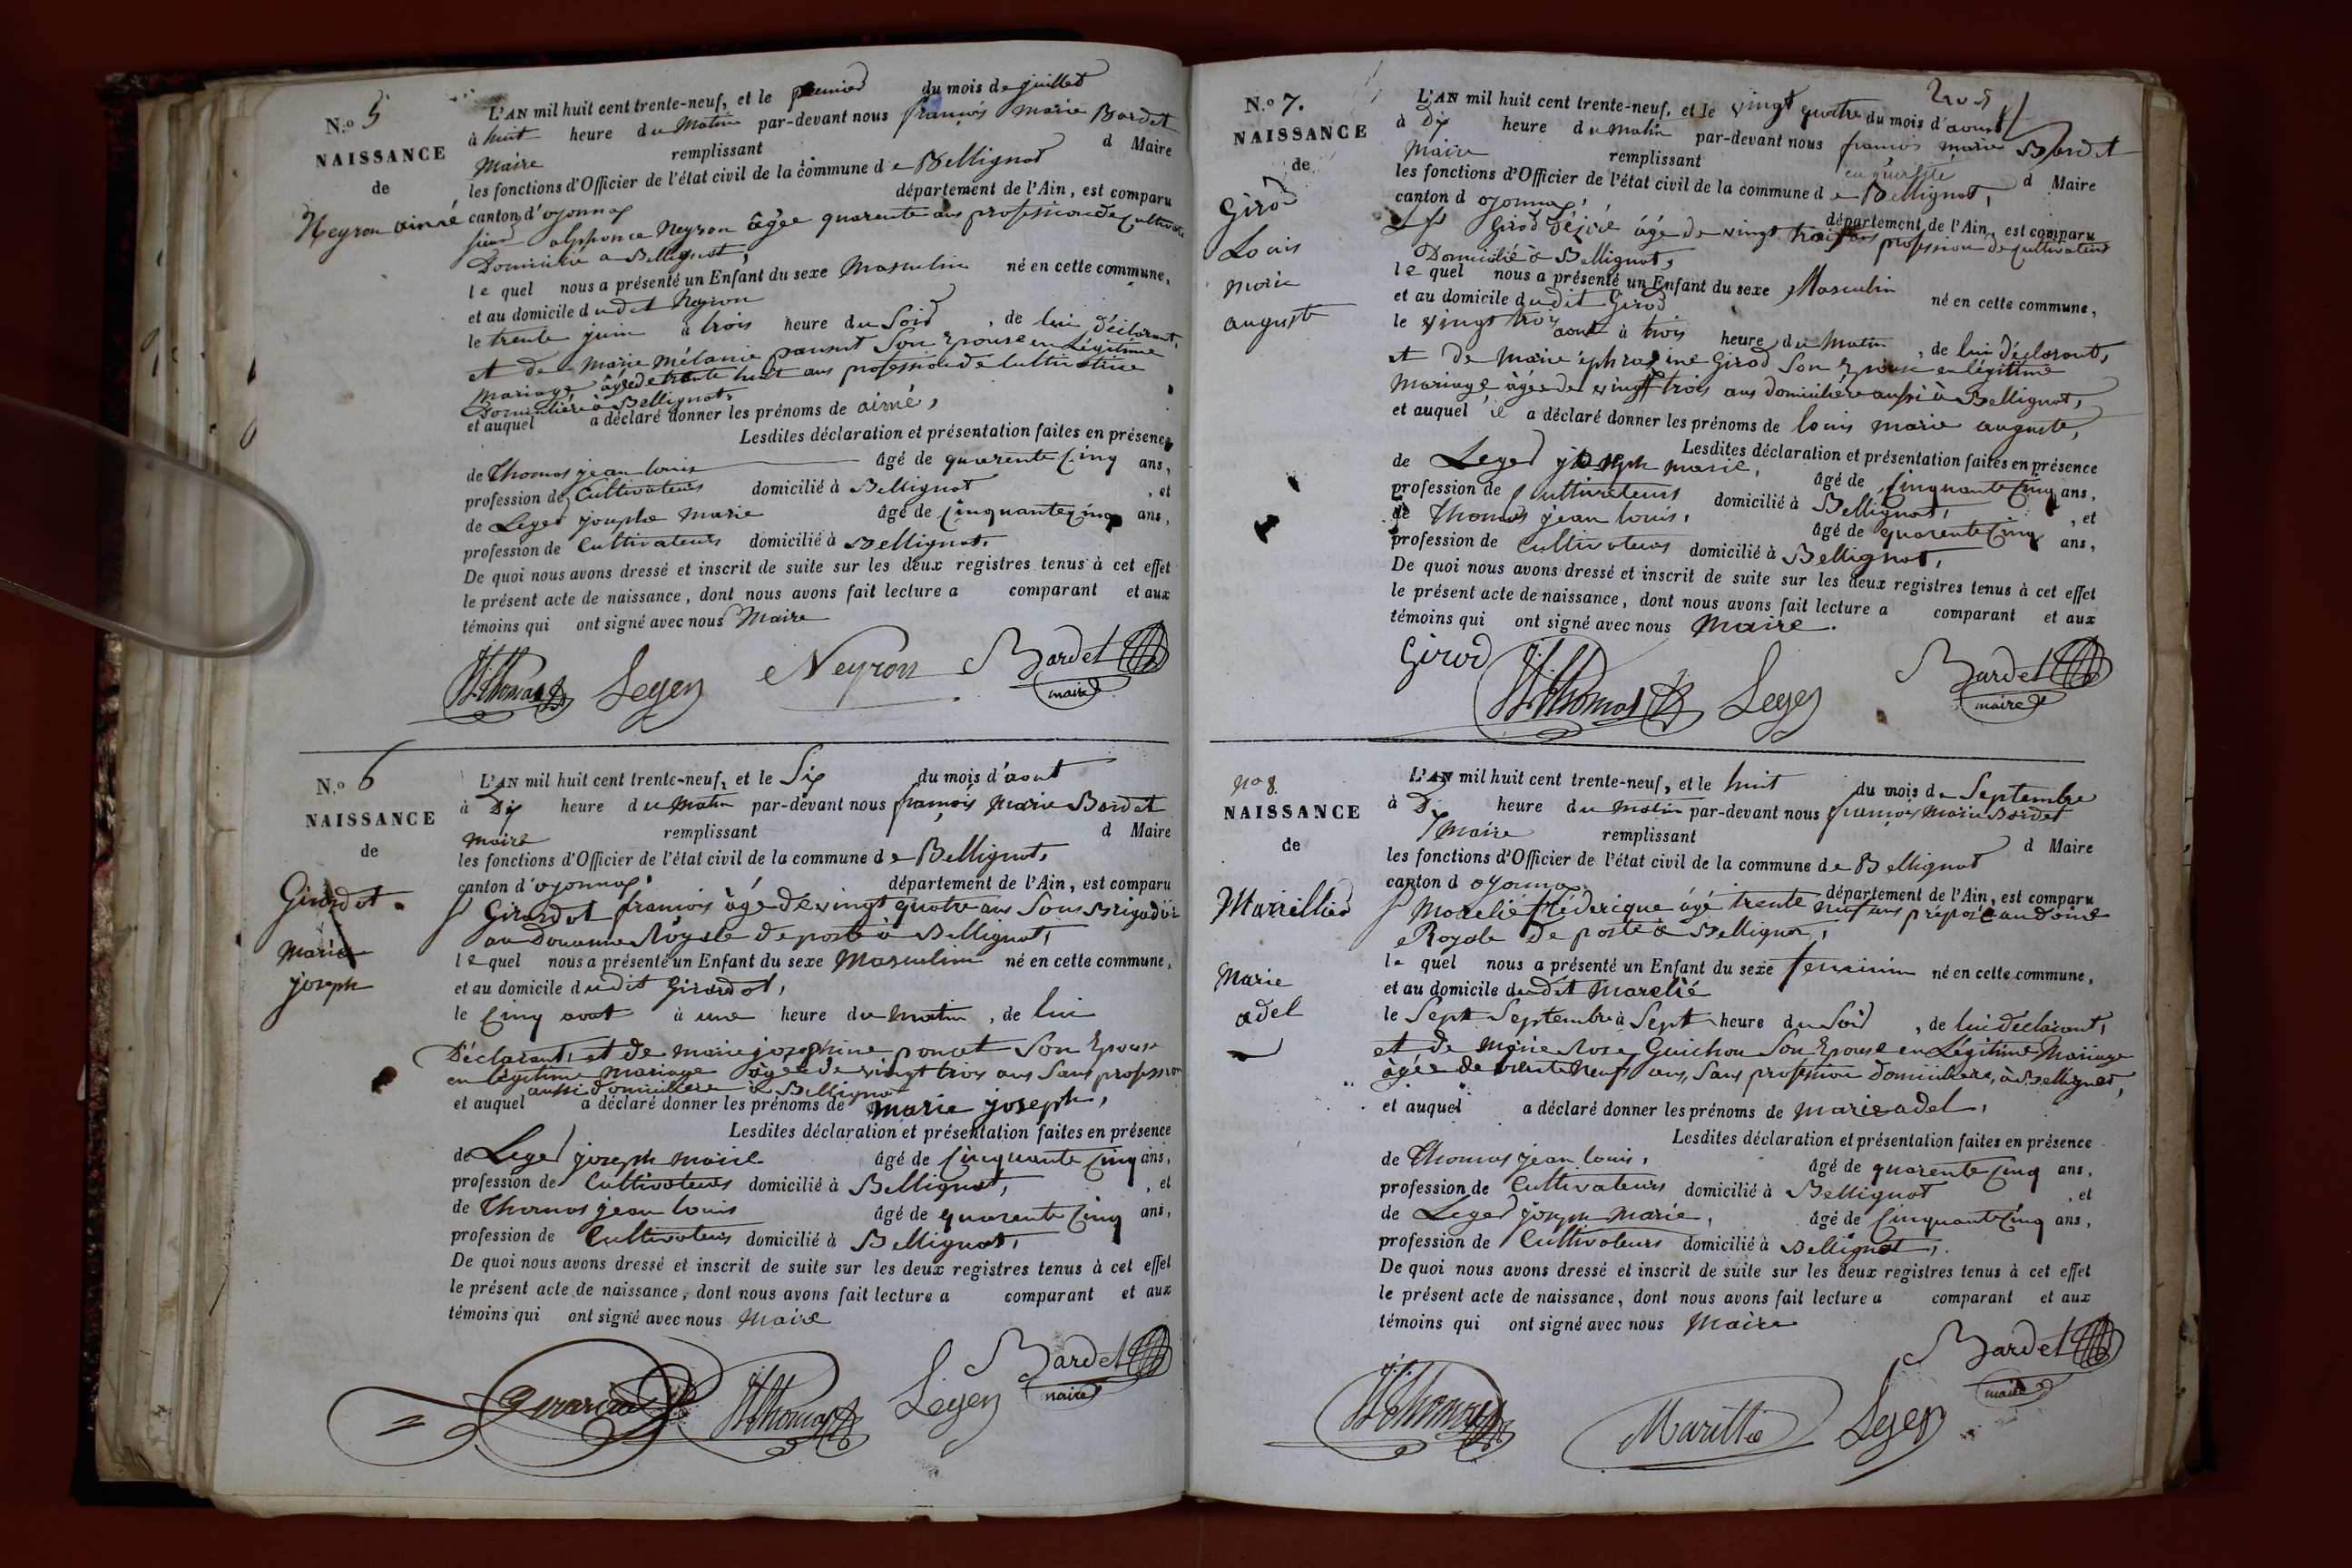 N.o 5
NAISSANCE
de
Neyron aimé
L'AN mil huit cent trente-neuf, et le premier du mois de juillet
à huit heure du Matin par-devant nous françois marie Bardet
Maire remplissant d Maire
les fonctions d'Officier de l'état civil de la commune de Bellignat
canton d'oyonnax département de l'Ain, est comparu
sieur alphonce Neyron âgée quarente ans profession de Cultivateur
Domicilié a Bellignat,
lequel nous a présenté un Enfant du sexe Masculin né en cette commune,
et au domicile dudit Neyron
le trente juin à trois heure du Soir, de lui déclarant,
et de Marie Mélanie poncet Son Epouse en Légitime
Mariage, âgée de trente huit ans profession de Cultivatrice
Domiciliére à Bellignat,
et auquel a déclaré donner les prénoms de aimé,
Lesdites déclaration et présentation faites en présence
de Thomas jean louis âgé de quarente Cinq ans,
profession de Cultivateurs domicilié à Bellignat, et
de Leger josephe Marie âgé de Cinquante Cinq ans,
profession de Cultivateurs domicilié à Bellignat.
De quoi nous avons dressé et inscrit de suite sur les deux registres tenus à cet effet
le présent acte de naissance, dont nous avons fait lecture a comparant et aux
témoins qui ont signé avec nous Maire
JLThomas Leger Neyron Bardet
maire
N.o 6
NAISSANCE
de
Girardot
Marie
joseph
L'AN mil huit cent trente-neuf, et le Six du mois d'aout
à Dix heure du Matin par-devant nous françois Marie Bardet
maire remplissant d Maire
les fonctions d'Officier de l'état civil de la commune de Bellignat,
canton d'oyonnax, département de l'Ain, est comparu
Sr Girardot françois âgé de vingt quatre ans Sous Brigadier
au douanne Royale de poste à Bellignat,
lequel nous a présenté un Enfant du sexe Masculin né en cette commune,
et au domicile dudit Girardot,
le Cinq aout à une heure du Matin, de lui
Déclarant, et de marie josephine poncet Son Epouse
en légitime Mariage âgée de vingt trois ans Sans profession
aussi domiciliere à Bellignat
et auquel a déclaré donner les prénoms de marie joseph,
Lesdites déclaration et présentation faites en présence
de Leger joseph marie âgé de Cinquante Cinq ans,
profession de Cultivateurs domicilié à Bellignat, et
de Thomas jean louis âgé de quarente Cinq ans,
profession de Cultivateurs domicilié à Bellignat,
De quoi nous avons dressé et inscrit de suite sur les deux registres tenus à cet effet
le présent acte de naissance, dont nous avons fait lecture a comparant et aux
témoins qui ont signé avec nous Maire
Girardot JLThomas Leger Bardet
maire
N.o 7.
NAISSANCE
de
Girod
Louis
Marie
auguste
L'AN mil huit cent trente-neuf, et le vingt quatre du mois d'aoust
à Dix heure du matin par-devant nous francois marie Bardet
Maire remplissant en qualité d Maire
les fonctions d'Officier de l'état civil de la commune de Bellignat,
canton d oyonnax, département de l'Ain, est comparu
Girod Désiré âgé de vingt trois ans profession de cultivateurs
Domicilié à Bellignat,
lequel nous a présenté un Enfant du sexe Masculin né en cette commune,
et au domicile dudit Girod
le vingt trois aout à trois heure du Matin, de lui déclarant,
et de Marie éphrasine Girod Son Epouse en légitime
Mariage, âgée de vingt trois ans domiciliére aussi à Bellignat,
et auquel il a déclaré donner les prénoms de louis marie auguste,
Lesdites déclaration et présentation faites en présence
de Leger joseph marie, âgé de Cinquante Cinq ans,
profession de Cultivateurs domicilié à Bellignat, et
de Thomas jean louis, âgé de quarente Cinq ans,
profession de Cultivateurs domicilié à Bellignat,
De quoi nous avons dressé et inscrit de suite sur les deux registres tenus à cet effet
le présent acte de naissance, dont nous avons fait lecture a comparant et aux
témoins qui ont signé avec nous Maire.
Girod JLThomas Leger Bardet
maire
No 8.
NAISSANCE
de
Marie
adel
L'AN mil huit cent trente-neuf, et le huit du mois de Septembre
à Dix heure du matin par-devant nous françois Marie Bardet
Maire remplissant d Maire
les fonctions d'Officier de l'état civil de la commune de Bellignat
canton d oyonnax, département de l'Ain, est comparu
Sr Marelié fréderique âgé trente neuf ans préposé au doine
Royale de poste à Bellignat,
le quel nous a présenté un Enfant du sexe feminin né en cette commune,
et au domicile dudit Marelié
le Sept Septembre à Sept heure du Soir, de lui déclarant,
et de Marie Rose Guichon Son Epouse en Légitime Mariage
âgée de trente neuf ans, Sans profession domiciliere, à Bellignat,
et auquel a déclaré donner les prénoms de marie adel,
Lesdites déclaration et présentation faites en présence
de Thomas jean louis, âgé de quarente Cinq ans,
profession de Cultivateurs domicilié à Bellignat, et
de Leger joseph Marie, âgé de Cinquante Cinq ans,
profession de Cultivateurs domicilié à Bellignat,
De quoi nous avons dressé et inscrit de suite sur les deux registres tenus à cet effet
le présent acte de naissance, dont nous avons fait lecture a comparant et aux
témoins qui ont signé avec nous Maire
JLThomas Marillie Leger Bardet
maire